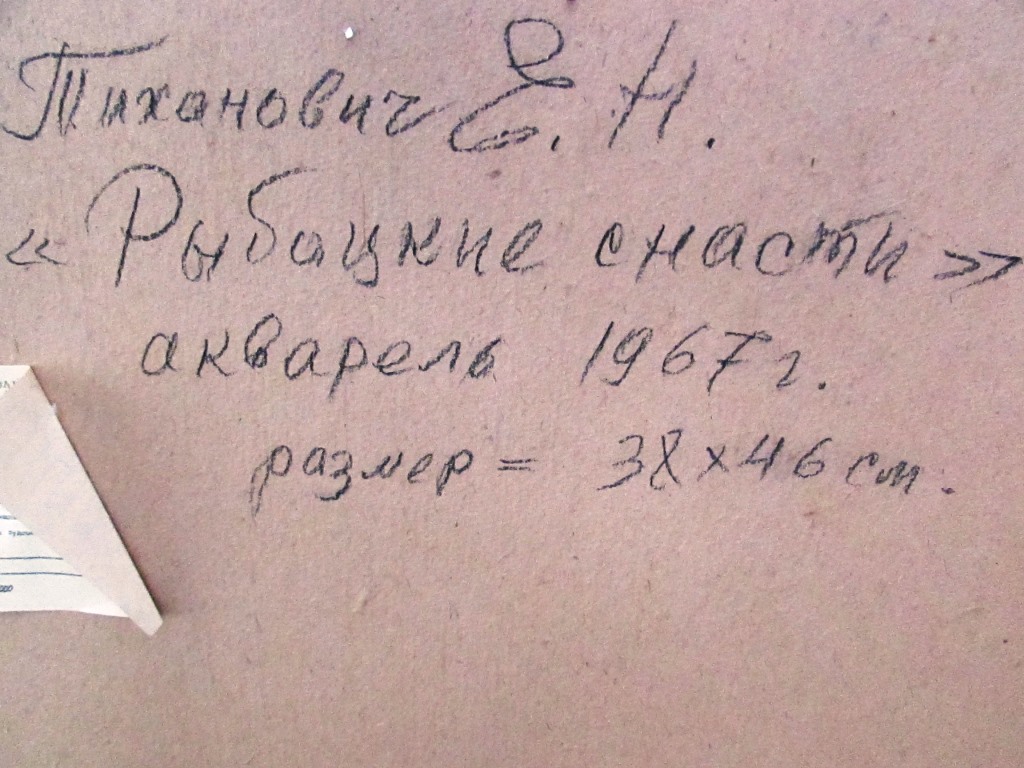 Тиханович Е. Н.
« Рыбацкие снасти »
акварель 1967 г.
размер = 38 x 46 см.